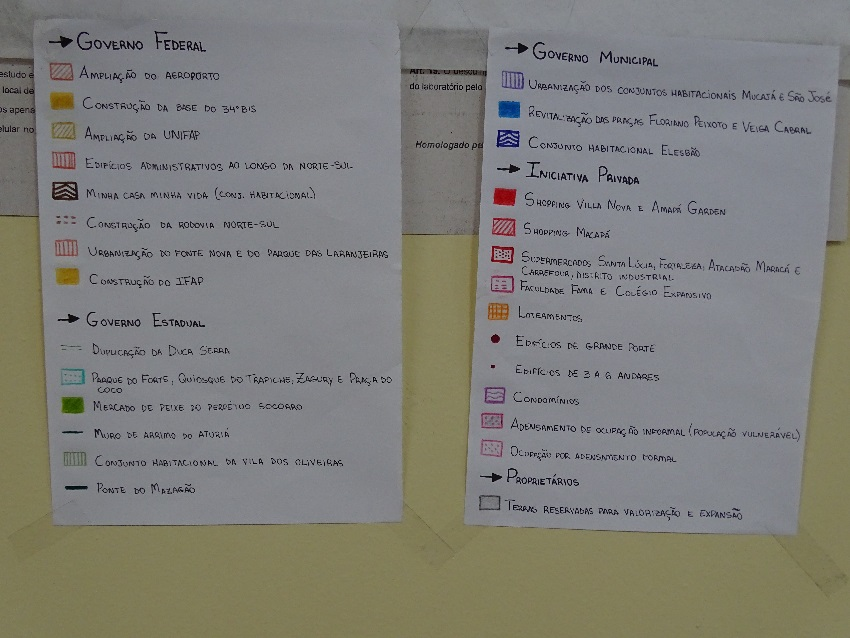 → GOVERNO FEDERAL
AMPLIAÇÃO DO AEROPORTO
CONSTRUÇÃO DA BASE DO 34º BIS
AMPLIAÇÃO DA UNIFAP
EDIFÍCIOS ADMINISTRATIVOS AO LONGO DA NORTE-SUL
MINHA CASA MINHA VIDA (CONJ. HABITACIONAL)
CONSTRUÇÃO DA RODOVIA NORTE-SUL
URBANIZAÇÃO DO FONTE NOVA E DO PARQUE DAS LARANJEIRAS
CONSTRUÇÃO DO IFAP
→ GOVERNO ESTADUAL
DUPLICAÇÃO DA DUCA SERRA
PARQUE DO FORTE, QUIOSQUE DO TRAPICHE, ZAGURY E PRAÇA DO
COCO
MERCADO DE PEIXE DO PERPÉTUO SOCORRO
MURO DE ARRIMO DO ATURIÁ
CONJUNTO HABITACIONAL DA VILA DOS OLIVEIRAS
PONTE DO MAZAGÃO
→ GOVERNO MUNICIPAL
URBANIZAÇÃO DOS CONJUNTOS HABITACIONAIS MUCAJÁ E SÃO JOSÉ
REVITALIZAÇÃO DAS PRAÇAS FLORIANO PEIXOTO E VEIGA CABRAL
CONJUNTO HABITACIONAL ELESBÃO
→ INICIATIVA PRIVADA
SHOPPING VILLA NOVA E AMAPÁ GARDEN
SHOPPING MACAPÁ
SUPERMERCADOS SANTA LÚCIA, FORTALEZA, ATACADÃO MARACÁ E
CARREFOUR, DISTRITO INDUSTRIAL
FACULDADE FAMA E COLÉGIO EXPANSIVO
LOTEAMENTOS
EDIFÍCIOS DE GRANDE PORTE
EDIFÍCIOS DE 3 A 6 ANDARES
CONDOMÍNIOS
ADENSAMENTO DE OCUPAÇÃO INFORMAL (POPULAÇÃO VULNERÁVEL)
OCUPAÇÃO POR ADENSAMENTO FORMAL
→ PROPRIETÁRIOS
TERRAS RESERVADAS PARA VALORIZAÇÃO E EXPANSÃO
local de
os apena
elular no
do laboratório pelo
Homologado